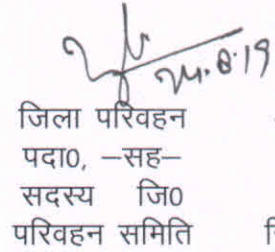 24.8.19
जिला परिवहन
पदा0, –सह–
सदस्य जि0
परिवहन समिति